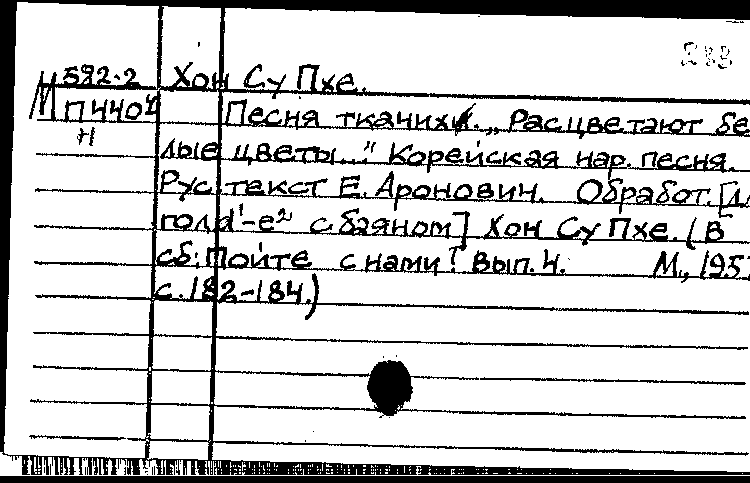 М 592-2 Хон Су Пхе.
П 4404 Песня ткачихи. „Расцветают бе
Н
лые цветы..." Корейская нар. песня.
Рус. текст Е. Аронович. Обработ. [дл
гол d¹-e² с баяном] Хон Су Пхе. (В
сб: Пойте с нами! Вып. 4. М., 195
с. 182-184.)